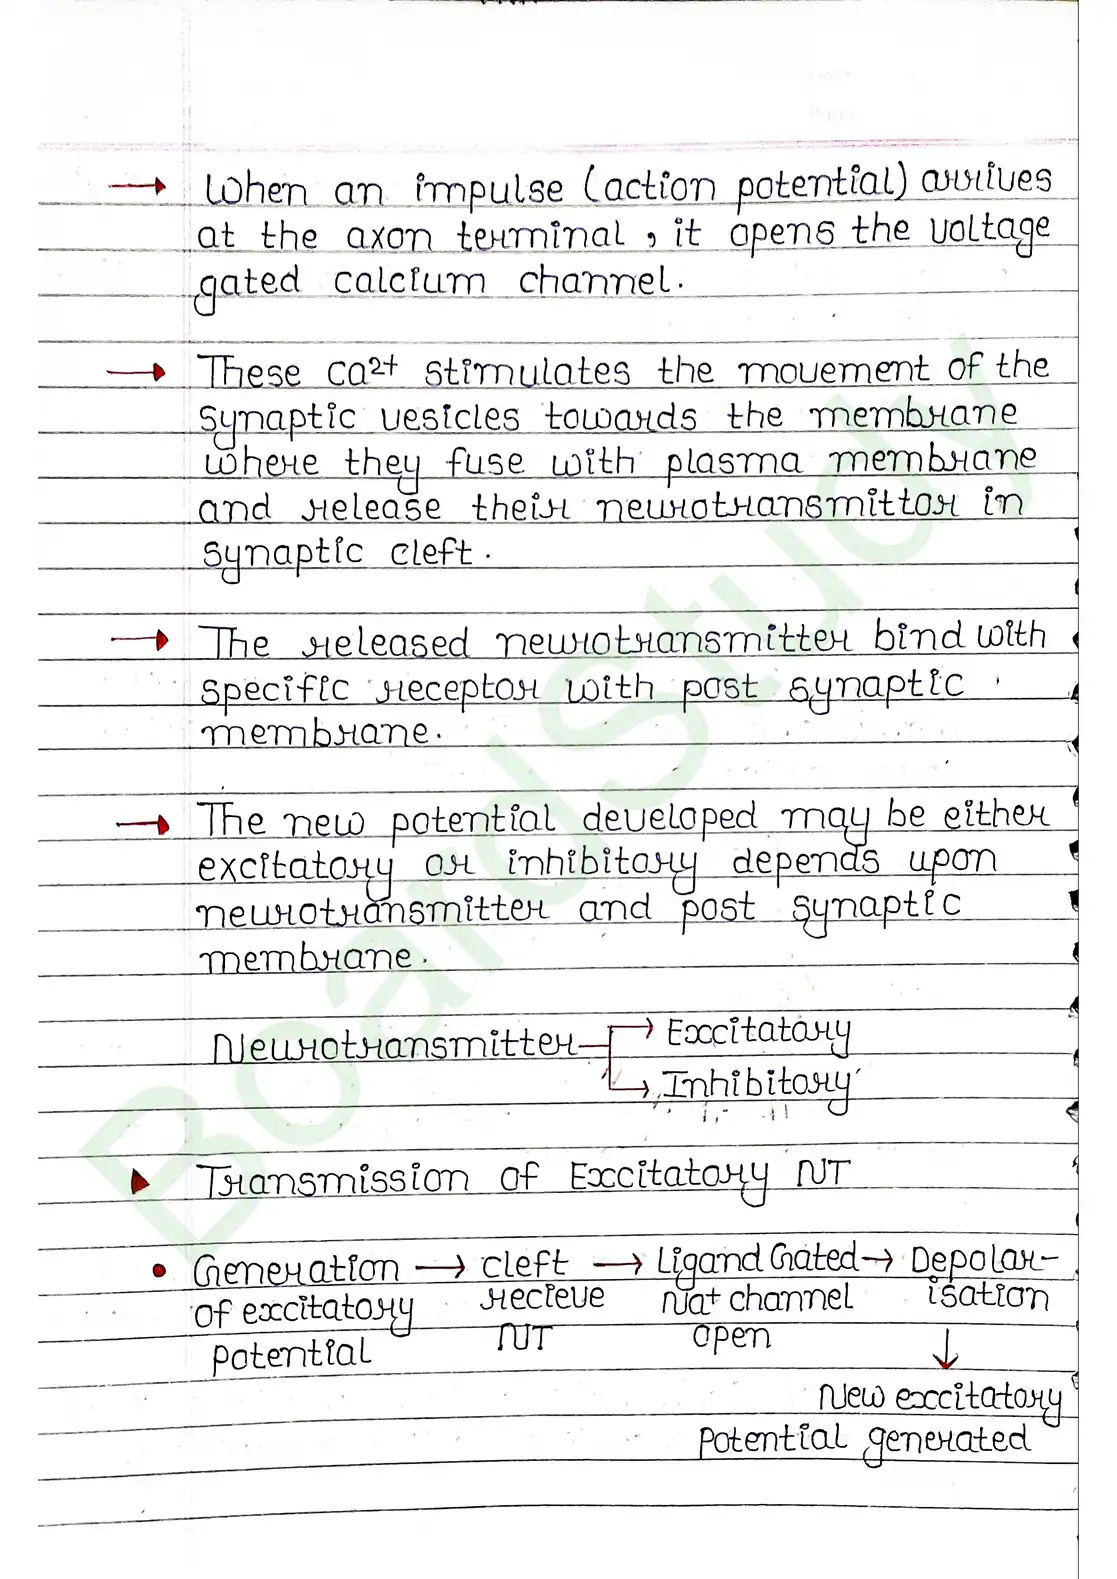 → When an impulse (action potential) arrives
at the axon terminal, it opens the voltage
gated calcium channel.
→ These ca2+ stimulates the movement of the
synaptic vesicles towards the membrane
where they fuse with plasma membrane
and release their neurotransmittor in
synaptic cleft.
→ The released neurotransmitter bind with
specific receptor with post synaptic
membrane.
→ The new potential developed may be either
excitatory or inhibitory depends upon
neurotransmitter and post synaptic
membrane.
Neurotransmitter → Exccitatory
→ Inhibitory
▶ Transmission of Exccitatory NT
• Generation → cleft → Ligand Gated → Depolar-
of exccitatory recieve Na+ channel isation
potential NT open ↓
New exccitatory
potential generated
BoardStudy